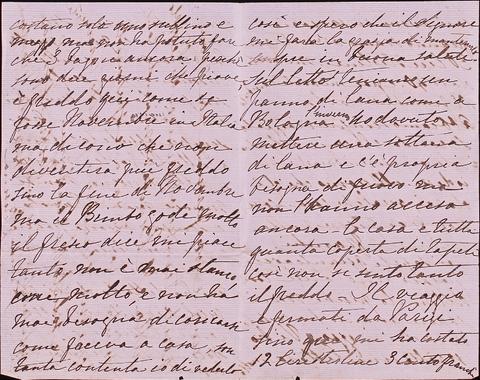 costano solo uno scellino e
mezzo ma non ho potuto fare
che 2 bagni ancora perché
sono due giorni che piove,
è freddo qui come se
fosse Novembre in Italia
ma dicono che non
diventerà più freddo
sino la fine di Novembre
ma el Bimbo gode molto
il fresco dice mi piace
tanto, non è mai stanco
corre molto, e non ha
mai bisogna di
come faceva a casa, son
tanta contenta io di vederlo
così e spero che il Signore
mi farà la grazia di
sempre in buona salute
Sul letto teniamo un
panno di lana come a
Bologna inverno, ho dovuto
mettere una sottana
di lana e c'è proprio
bisogna di fuoco ma
non l'hanno acceso
ancora la casa è tutta
quanta coperta di tapeti
così non si sente tanto
il freddo – Il viaggio
e fermati da Parigi
fino qui, mi ha costato
12 Lire 3 cento